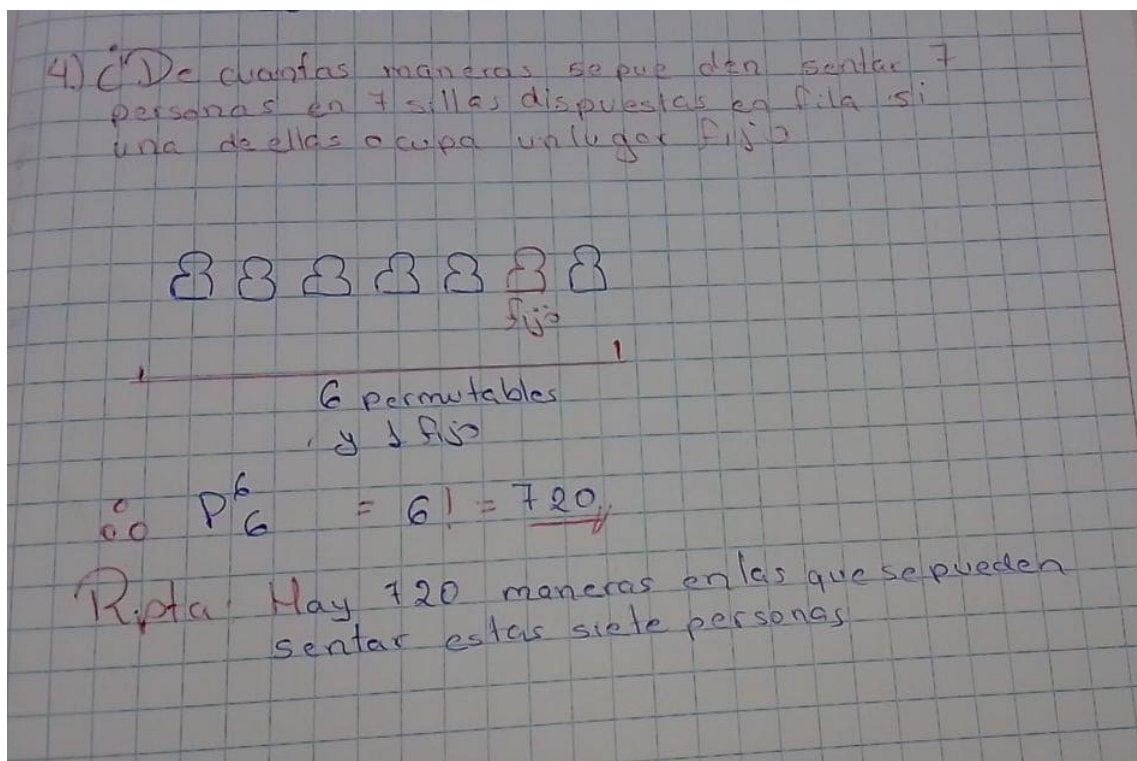 4) ¿De cuantas maneras se pue den sentar 7
personas en 7 sillas dispuestas en fila si
una de ellas ocupa un lugar fijo
fijo
6 permutables
y 1 fijo
∴ P⁶₆ = 6! = 720
Rpta: Hay 720 maneras en las que se pueden
sentar estas siete personas